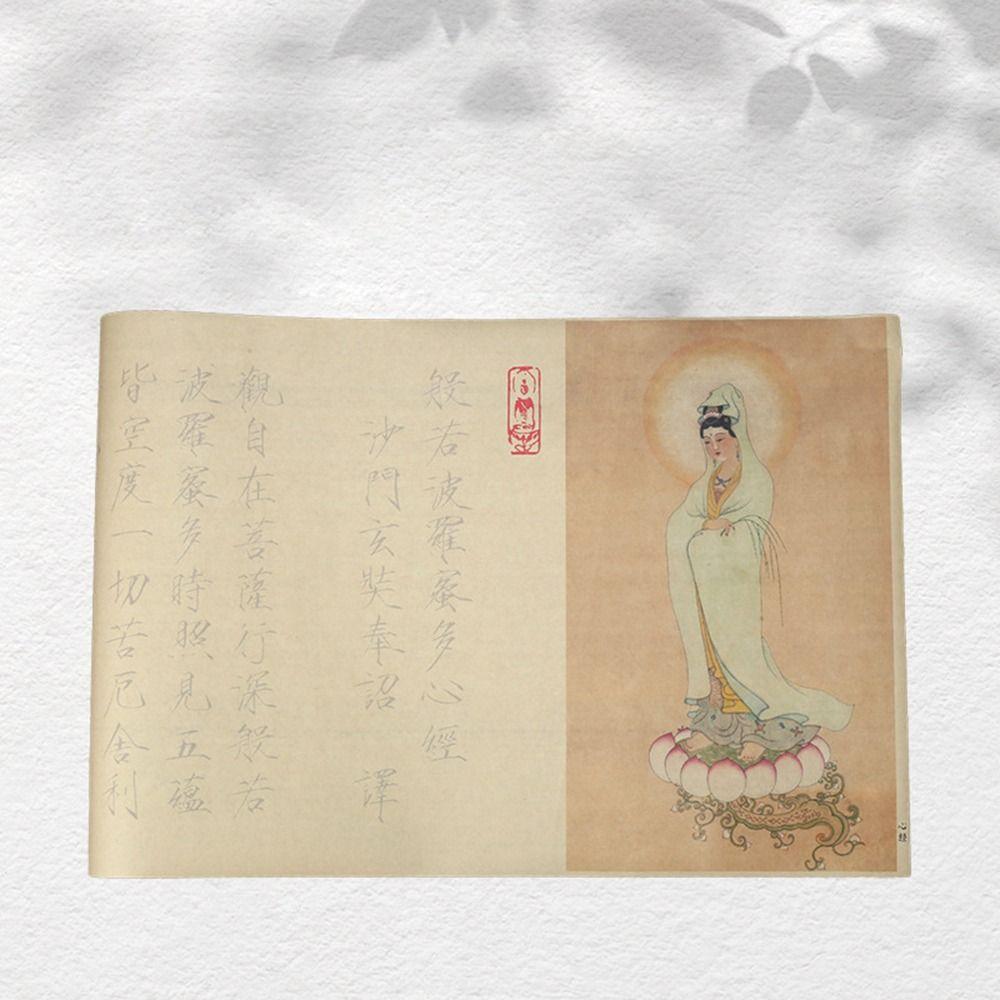 心経
般若波羅蜜多心經
沙門玄奘奉詔 譯
觀自在菩薩行深般若
波羅蜜多時照見五蘊
皆空度一切苦厄舍利